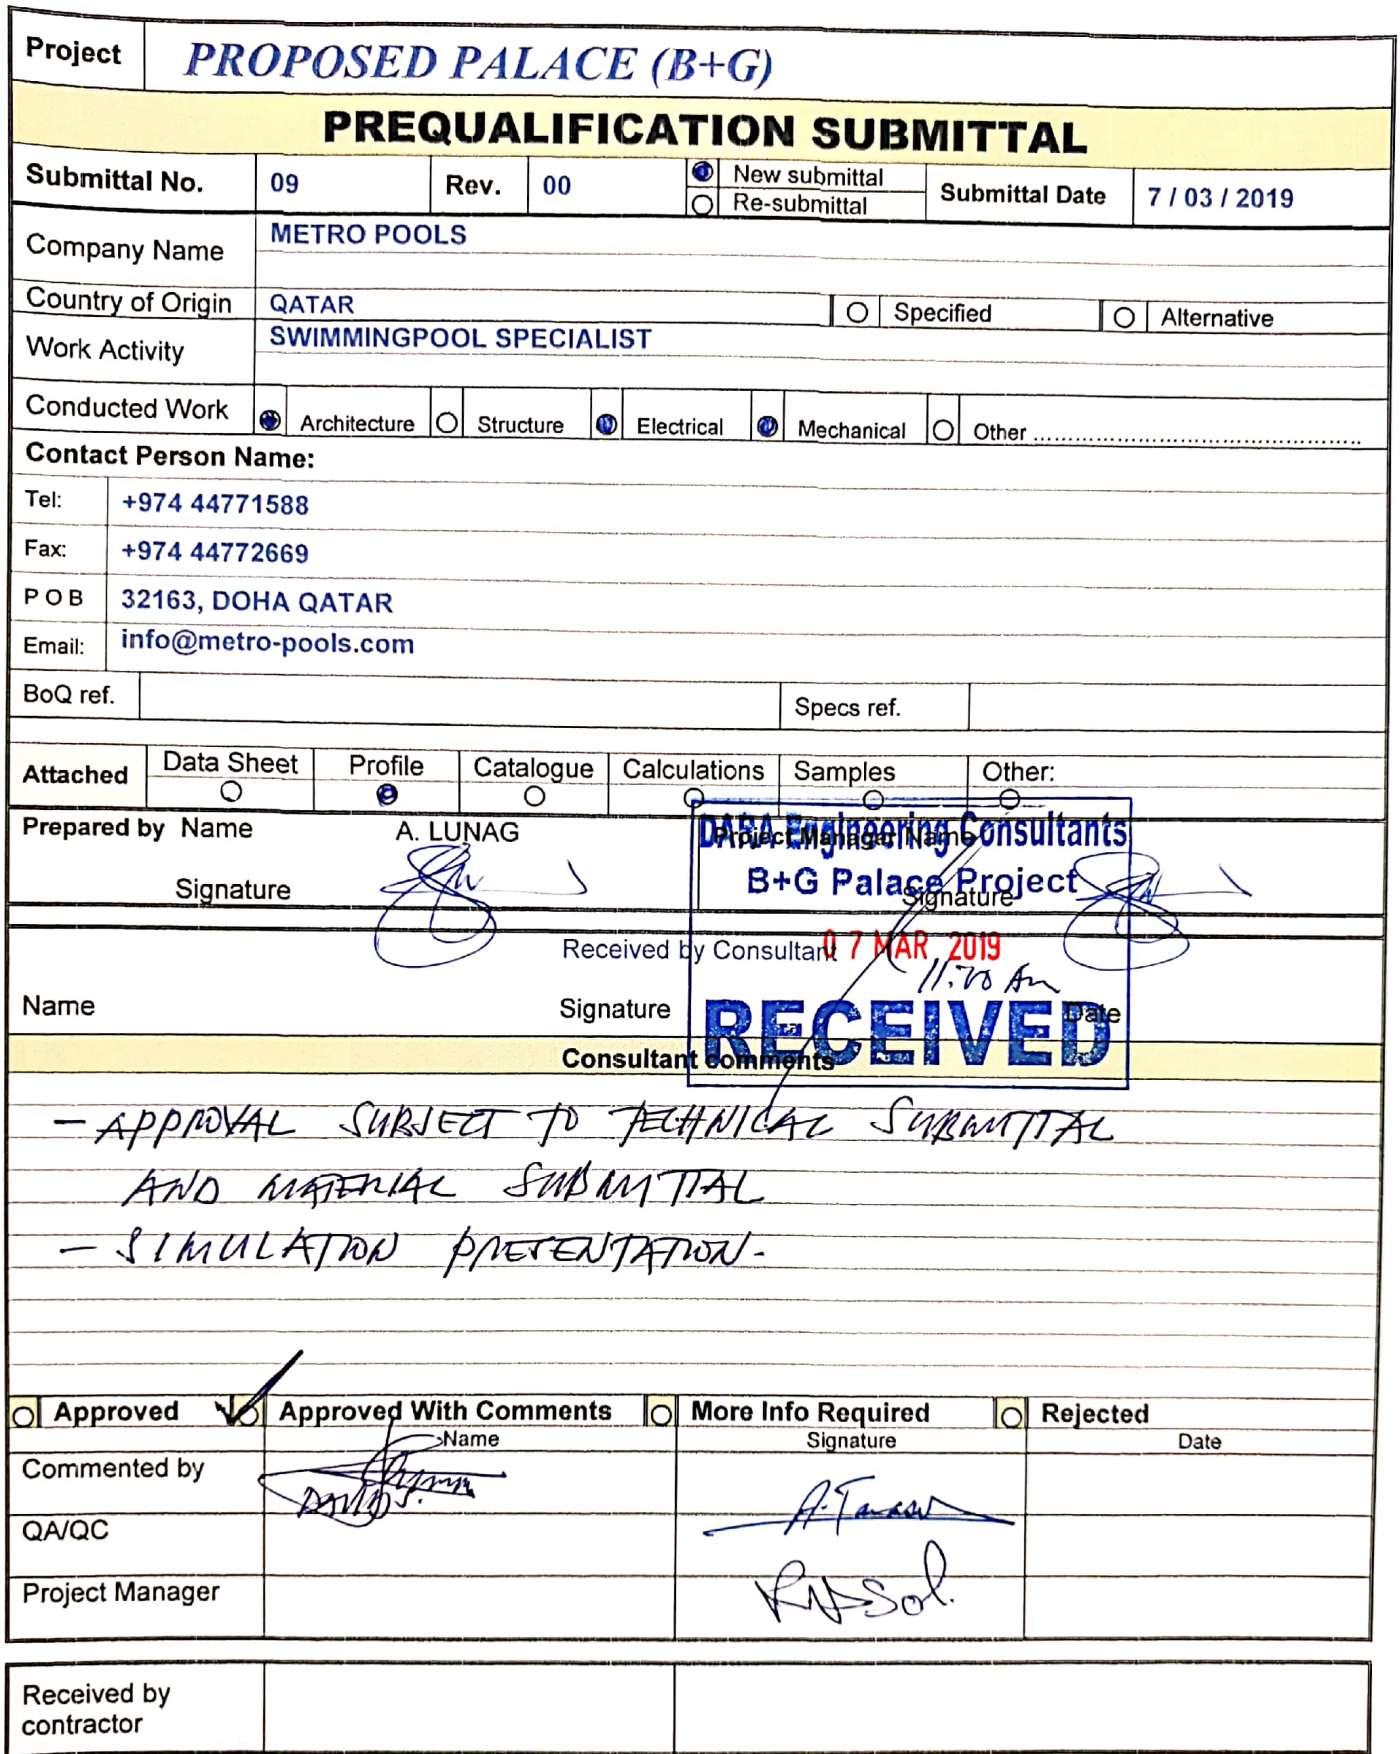 Project PROPOSED PALACE (B+G)
PREQUALIFICATION SUBMITTAL
Submittal No. 09 Rev. 00 New submittal Re-submittal Submittal Date 7 / 03 / 2019
Company Name METRO POOLS
Country of Origin QATAR Specified Alternative
Work Activity SWIMMINGPOOL SPECIALIST
Conducted Work Architecture Structure Electrical Mechanical Other ................................................
Contact Person Name:
Tel: +974 44771588
Fax: +974 44772669
P O B 32163, DOHA QATAR
Email: info@metro-pools.com
BoQ ref. Specs ref.
Attached Data Sheet Profile Catalogue Calculations Samples Other:
Prepared by Name A. LUNAG Project Manager Name
DARA Engineering Consultants
B+G Palace Project
Signature Signature
Received by Consultant 07 MAR 2019
Name Signature Date
RECEIVED
Consultant comments
- APPROVAL SUBJECT TO TECHNICAL SUBMITTAL
AND MATERIAL SUBMITTAL
- SIMULATION PRESENTATION.
Approved Approved With Comments More Info Required Rejected
Name Signature Date
Commented by DAVID S.
QA/QC
Project Manager
Received by
contractor